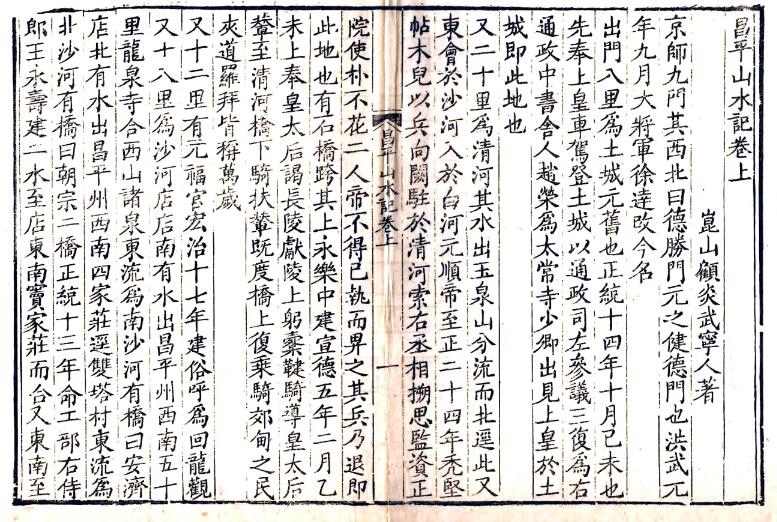 昌平山水記卷上
崑山顧炎武寧人著
京師九門其西北曰德勝門元之健德門也洪武元
年九月大將軍徐逹攺今名
出門八里爲土城元舊也正統十四年十月己未也
先奉上皇車駕登土城以通政司左參議三復爲右
通政中書舍人趙榮爲太常寺少卿出見上皇於土
城即此地也
又二十里爲清河其水出玉泉山分流而北逕此又
東會於沙河入於白河元順帝至正二十四年禿堅
帖木兒以兵向闕駐於清河索右丞相搠思監資正
昌平山水記卷上
一
院使朴不花二人帝不得已執而畀之其兵乃退即
此地也有石橋跨其上永樂中建宣德五年二月乙
未上奉皇太后謁長陵獻陵上躬櫜鞬騎導皇太后
輦至清河橋下騎扶輦旣度橋上復乗騎郊甸之民
夾道羅拜皆稱萬歲
又十二里有元福官宏治十七年建俗呼爲回龍觀
又十八里爲沙河店店南有水出昌平州西南五十
里龍泉寺合西山諸泉東流爲南沙河有橋曰安濟
店北有水出昌平州西南四家莊逕雙塔村東流爲
北沙河有橋曰朝宗二橋正統十三年命工部右侍
郎王永壽建二水至店東南竇家莊而合又東南至